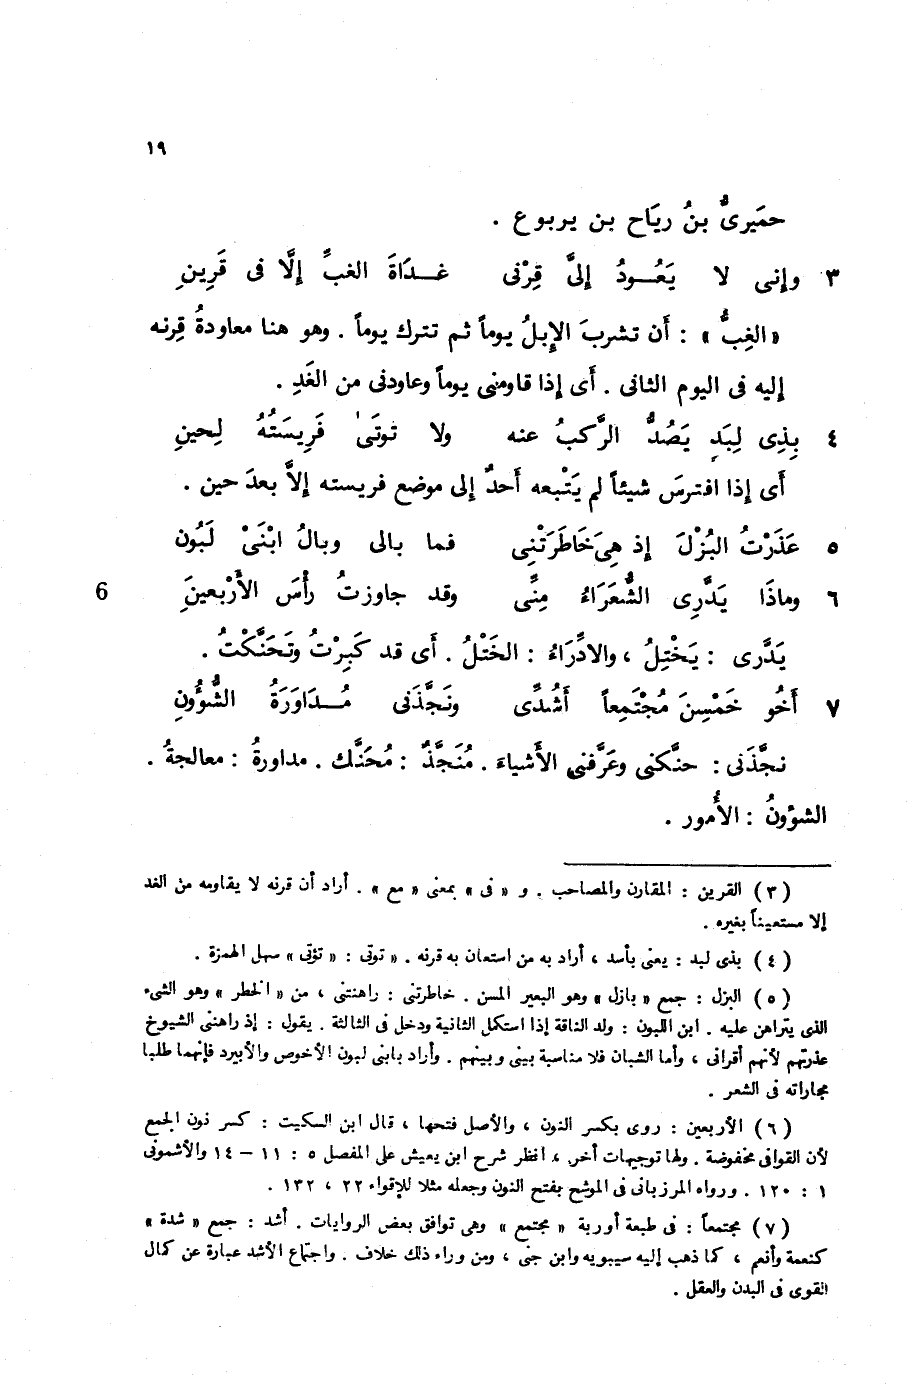 ١٩
حميَرىُّ بنُ ريَاح بن يربوع .
٣ وإنى لا يَعُــودُ إلىَّ قِرْنى غــدَاةَ الغبِّ إلَّا فى قَرِينِ
« الغِبُّ » : أَن تشربَ الإبلُ يوماً ثم تترك يوماً . وهو هنا معاودةُ قِرنه
إليه فى اليوم الثانى . أَى إذا قاومنى يوماً وعاودنى من الغَدِ .
٤ بِذِى لِبَدٍ يَصُدُّ الرَّكبُ عنه ولا توتَىٰ فَرِيسَتُهُ لِحينِ
أَى إذا افترسَ شيئاً لم يَتْبعه أَحدٌ إلى موضع فريسته إلاَّ بعدَ حين .
٥ عَذَرْتُ البُزْلَ إذ هِىَ خَاطَرَتْنِى فما بالى وبالُ ابْنَىْ لَبُون
٦ وماذَا يَدَّرِى الشُّعَرَاءُ مِنِّى وقد جاوزتُ رأْسَ الأَرْبعينَِ 6
يَدَّرى : يَخْتِلُ ، والادِّرَاءُ : الخَتْلُ . أَى قد كَبِرْتُ وتَحَنَّكْتُ .
٧ أَخُو خَمْسِنَ مُجْتَمِعاً أَشُدِّى ونَجَّذَنى مُــدَاوَرَةُ الشُّؤُونِ
نجَّذَنى : حنَّكنى وعَرَّفنى الأَشياءَ . مُنَجَّذٌ : مُحَنَّك . مداورةُ : معالجةُ .
الشؤونُ : الأُمور .
( ٣ ) القرين : المقارن والمصاحب . و « فى » بمعنى « مع » . أراد أن قرنه لا يقاومه من الغد
إلا مستعيناً بغيره .
( ٤ ) بذى لبد : يعنى بأسد ، أراد به من استعان به قرنه . « توتى : « تؤتى » سهل الهمزة .
( ٥ ) البزل : جمع « بازل » وهو البعير المسن . خاطرتنى : راهنتنى ، من « الخطر » وهو الشىء
الذى يتراهن عليه . ابن اللبون : ولد الناقة إذا استكمل الثانية ودخل فى الثالثة . يقول : إذ راهننى الشيوخ
عذرتهم لأنهم أقرانى ، وأما الشبان فلا مناسبة بينى وبينهم . وأراد بابنى لبون الأخوص والأبيرد فإنهما طلبا
مجاراته فى الشعر .
( ٦ ) الأربعين : روى بكسر النون ، والأصل فتحها ، قال ابن السكيت : كسر نون الجمع
لأن القوافى مخفوضة . ولها توجيهات أخر ، انظر شرح ابن يعيش على المفصل ٥ : ١١ – ١٤ والأشمونى
١ : ١٢٠ . ورواه المرزبانى فى الموشح بفتح النون وجعله مثلا للإقواء ٢٢ ، ١٣٢ .
( ٧ ) مجتمعاً : فى طبعة أوربة « مجتمع » وهى توافق بعض الروايات . أشد : جمع « شدة »
كنعمة وأنعم ، كما ذهب إليه سيبويه وابن جنى ، ومن وراء ذلك خلاف . واجتماع الأشد عبارة عن كمال
القوى فى البدن والعقل .